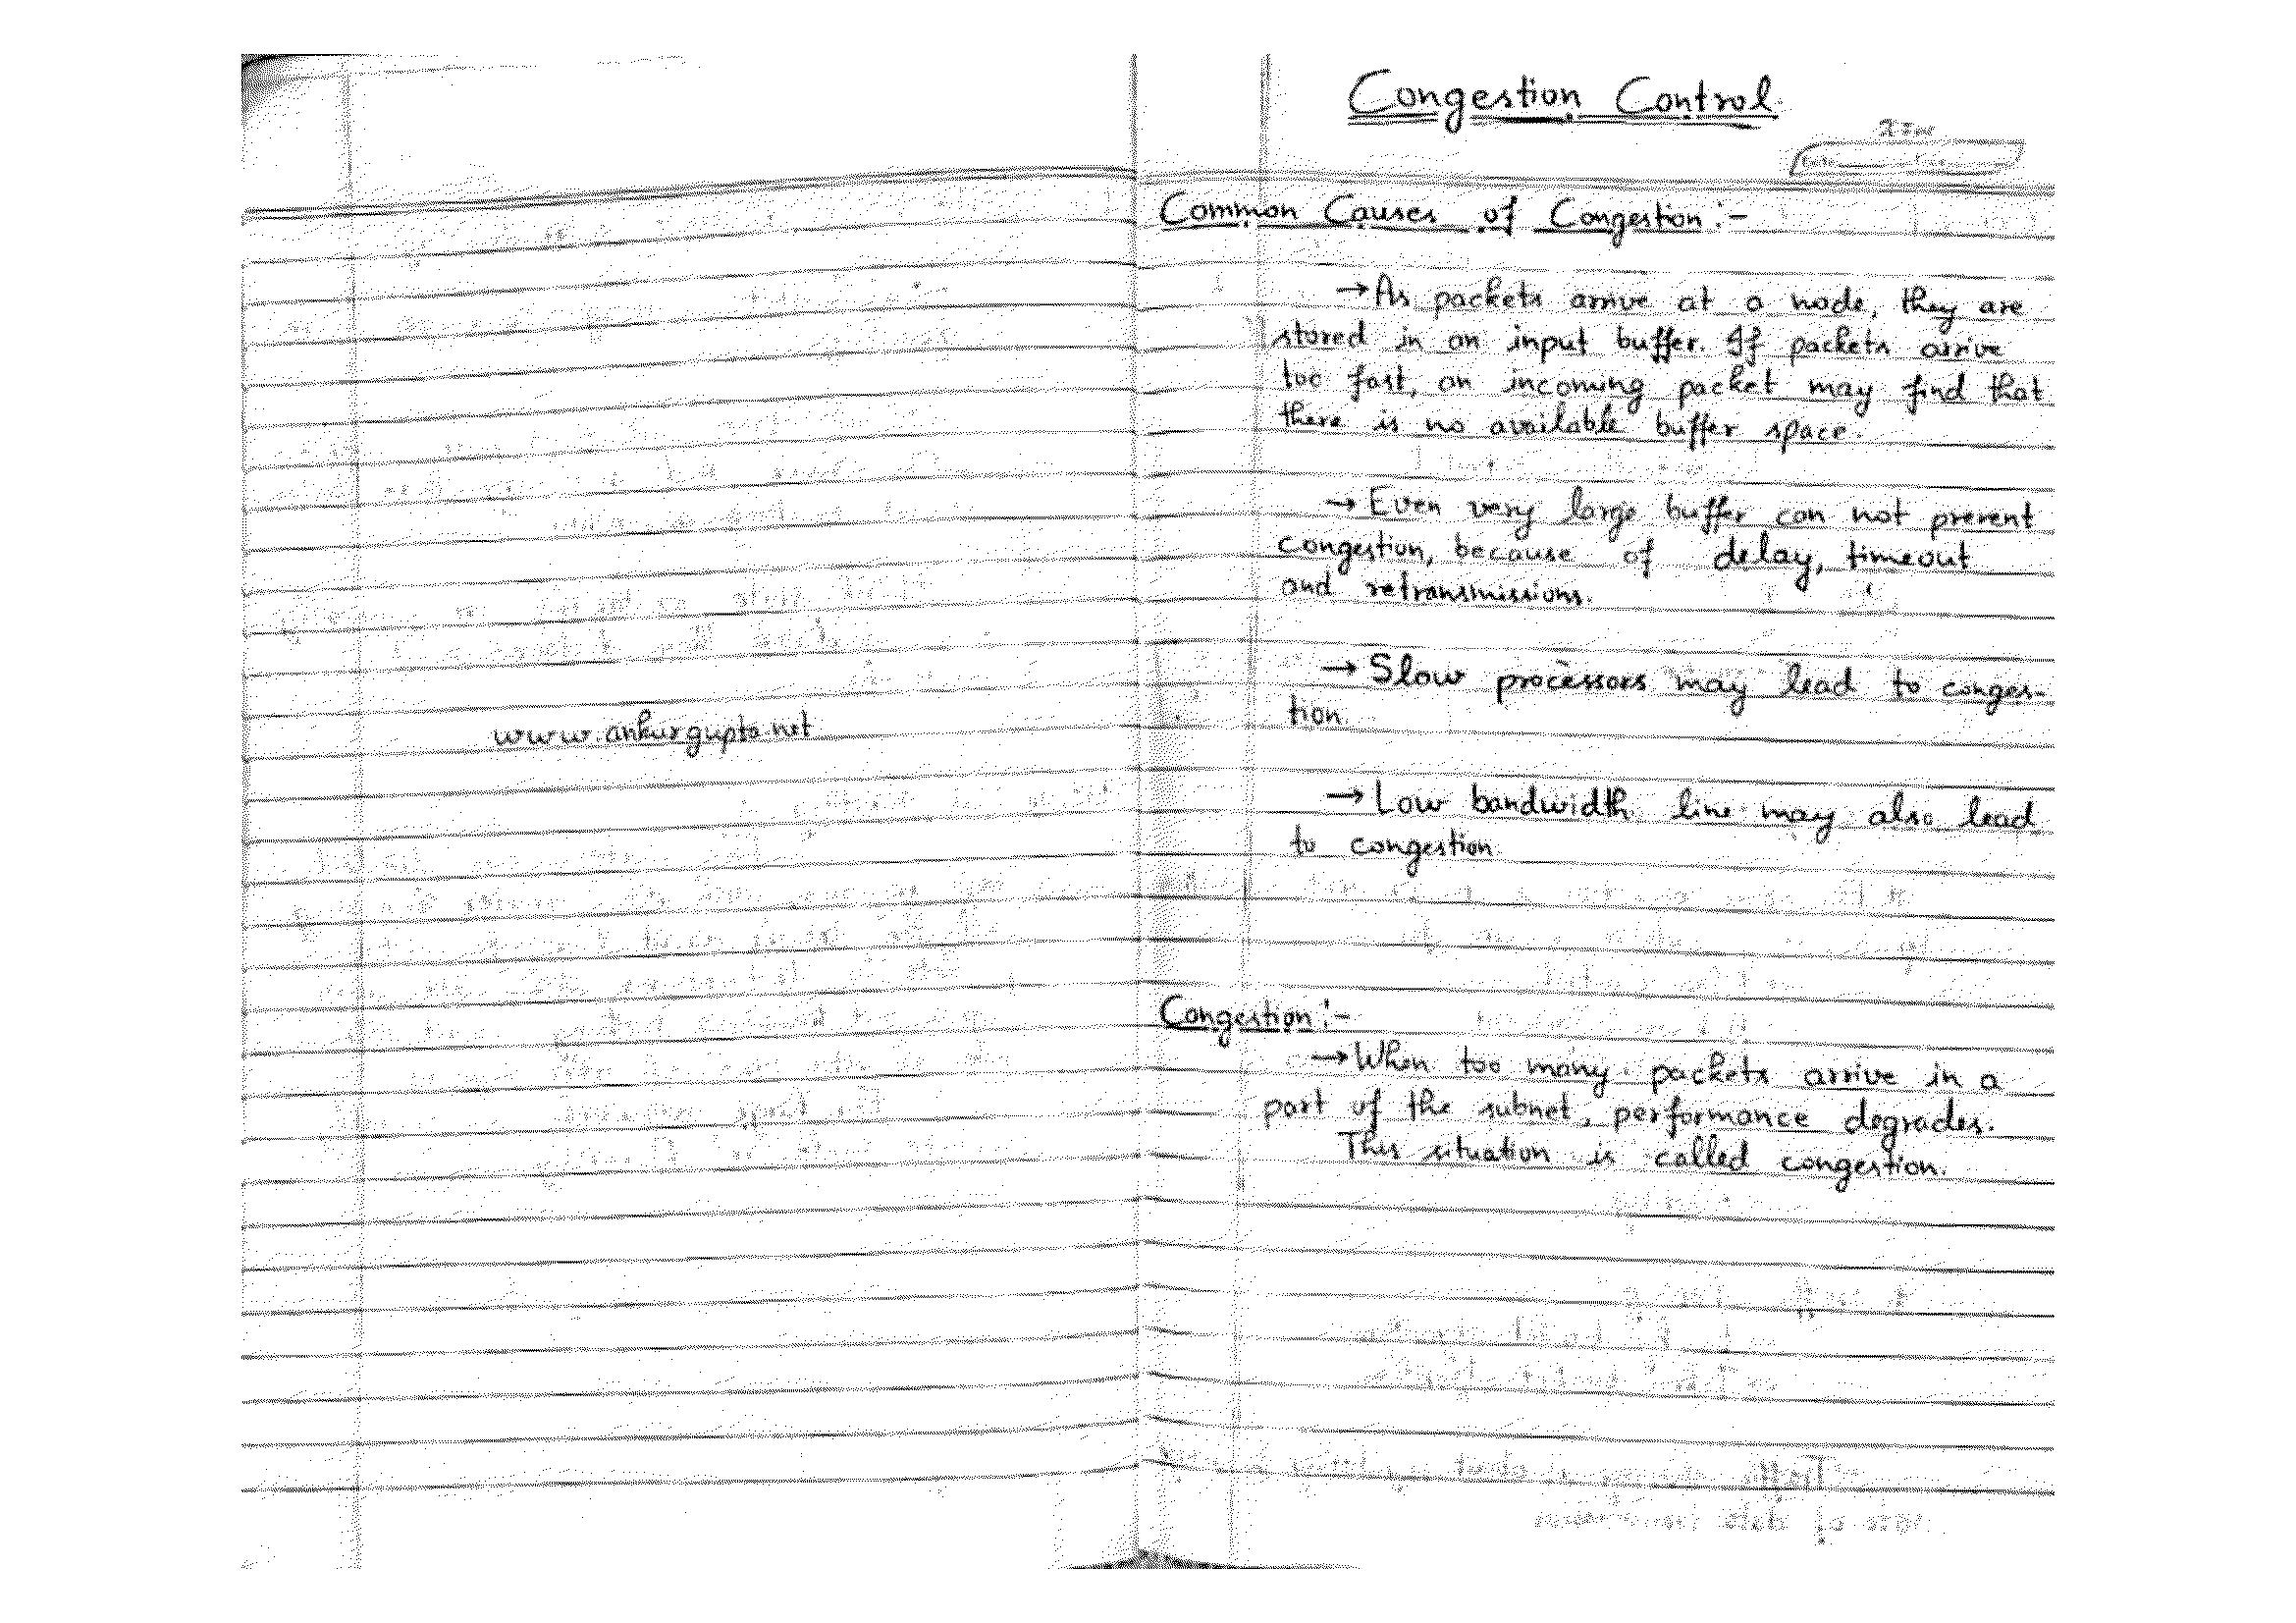 www.ankurgupta.net
Congestion Control
Common Causes of Congestion :-
→ As packets arrive at a node, they are
stored in an input buffer. If packets arrive
too fast, an incoming packet may find that
there is no available buffer space.
→ Even very large buffer can not prevent
congestion, because of delay, timeout
and retransmissions.
→ Slow processors may lead to conges-
tion.
→ Low bandwidth line may also lead
to congestion.
Congestion :-
→ When too many packets arrive in a
part of the subnet, performance degrades.
This situation is called congestion.